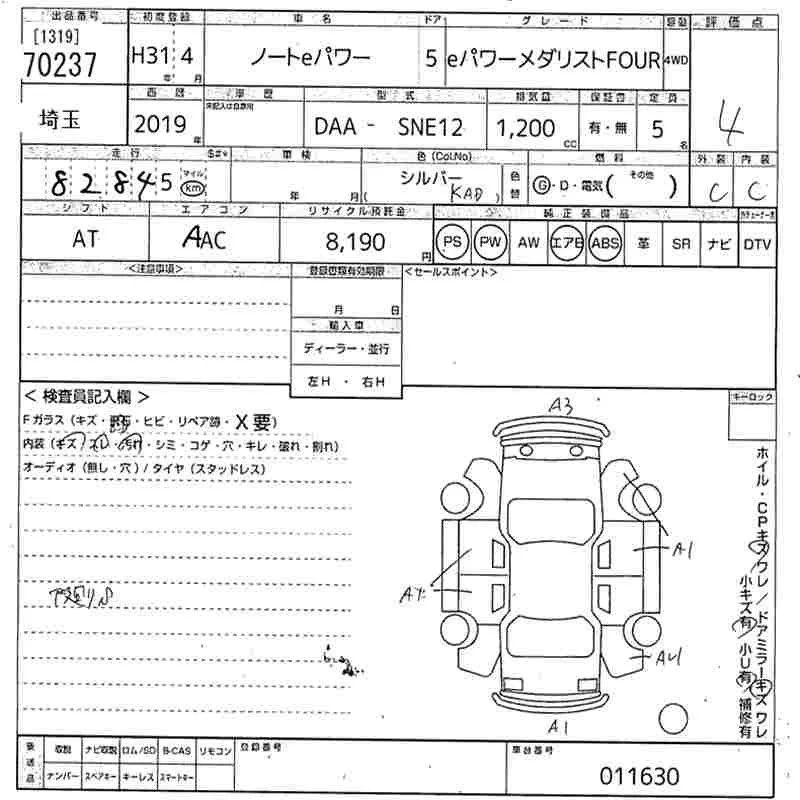 出品番号 初度登録 車名 ドア グレード 駆動 評価点
[1319]
70237 H31 4 ノートeパワー 5 eパワーメダリストFOUR 4WD 4
年 月
埼玉 西暦 車歴 型式 排気量 保証書 定員
未記入は自家用
2019 年 DAA - SNE12 1,200 CC 有・無 5 名
走行 車検 色(Col.No) 燃料 外装 内装
82845 マイル km 年 月 シルバー ( KAD ) 色替 G・D・電気( その他 ) C C
シフト エアコン リサイクル預託金 純正装備品
AT AAC 8,190 円 PS PW AW エアB ABS 革 SR ナビ DTV
<注意事項> 登録書類有効期限 <セールスポイント>
月 日
輸入車
ディーラー・並行
左H ・ 右H
<検査員記入欄> キーロック
Fガラス(キズ・ ・ヒビ・リペア跡・X要)
内装(キズ・ ・ ・シミ・コゲ・穴・キレ・破れ・割れ)
オーディオ(無し・穴)/タイヤ(スタッドレス)
A3
A1
AU
A1
ホイル・CPキズワレ/ドアミラーキズワレ
小キズ有 小U有 補修有
後送品 取説 ナビ取説 ロム/SD B-CAS リモコン 登録番号 車台番号
ナンバー スペアキー キーレス スマートキー 011630